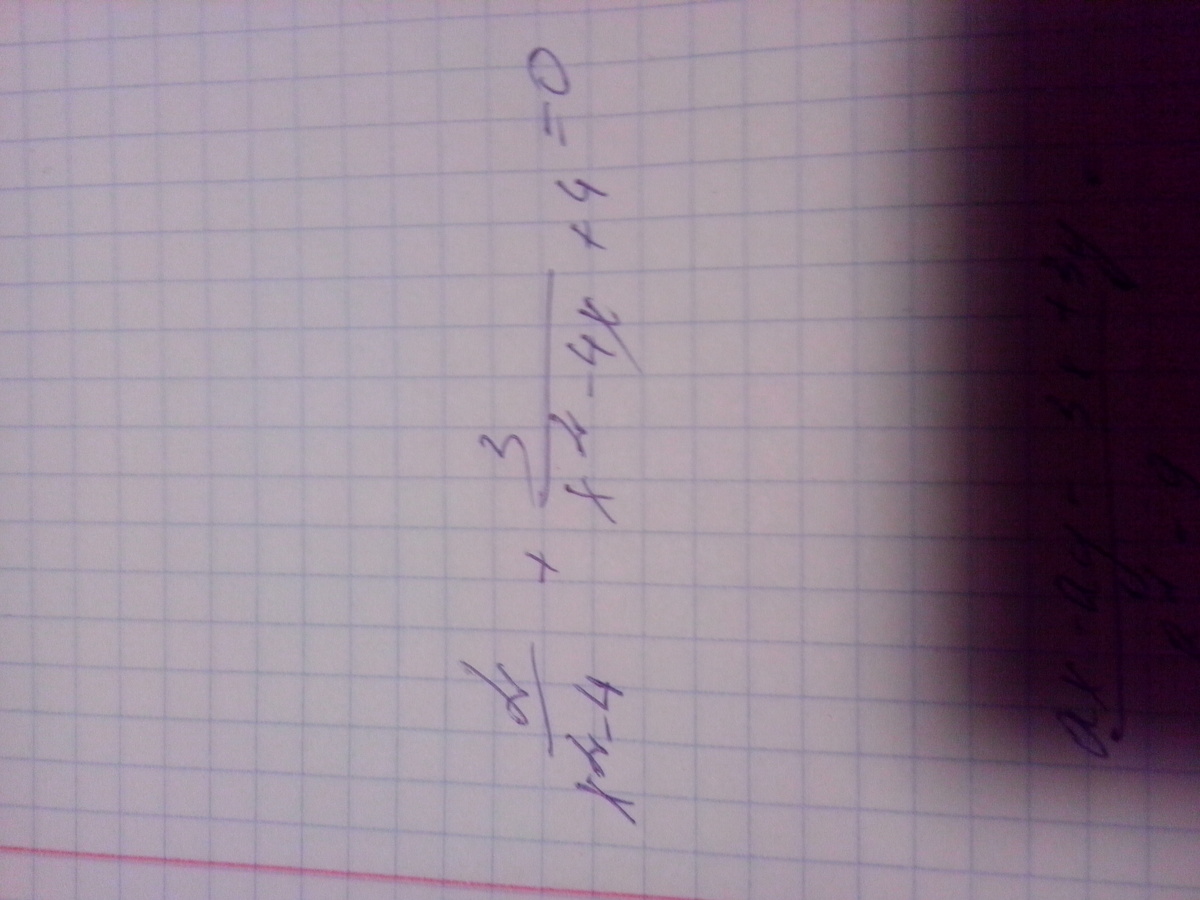 2/(x²-4) + 3/(x²-4x) + 4 = 0
ax - ay - 3x + 3y